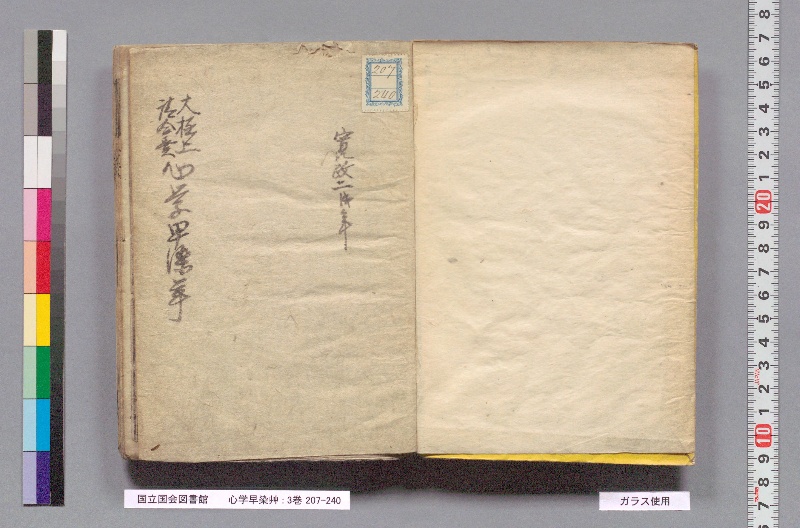 207
240
寛政二戌年
大極上
請合賣
心学早染草
国立国会図書館 心学早染艸 : 3巻 207-240
ガラス使用
8
7
6
5
4
3
2
1
20
9
8
7
6
5
4
3
2
1
10
9
8
7